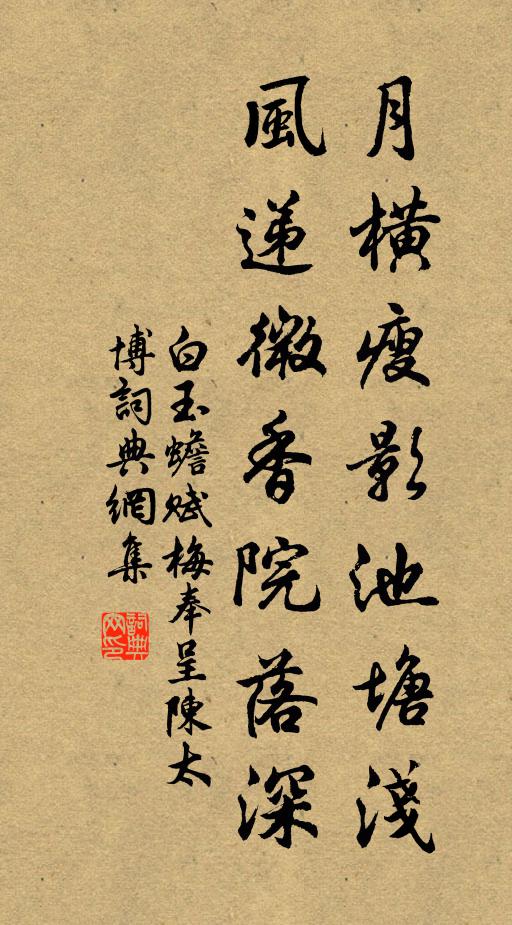 月橫瘦影池塘淺
風递微香院落深
白玉蟾赋梅奉呈陳太
博詞典網集
詞典网印